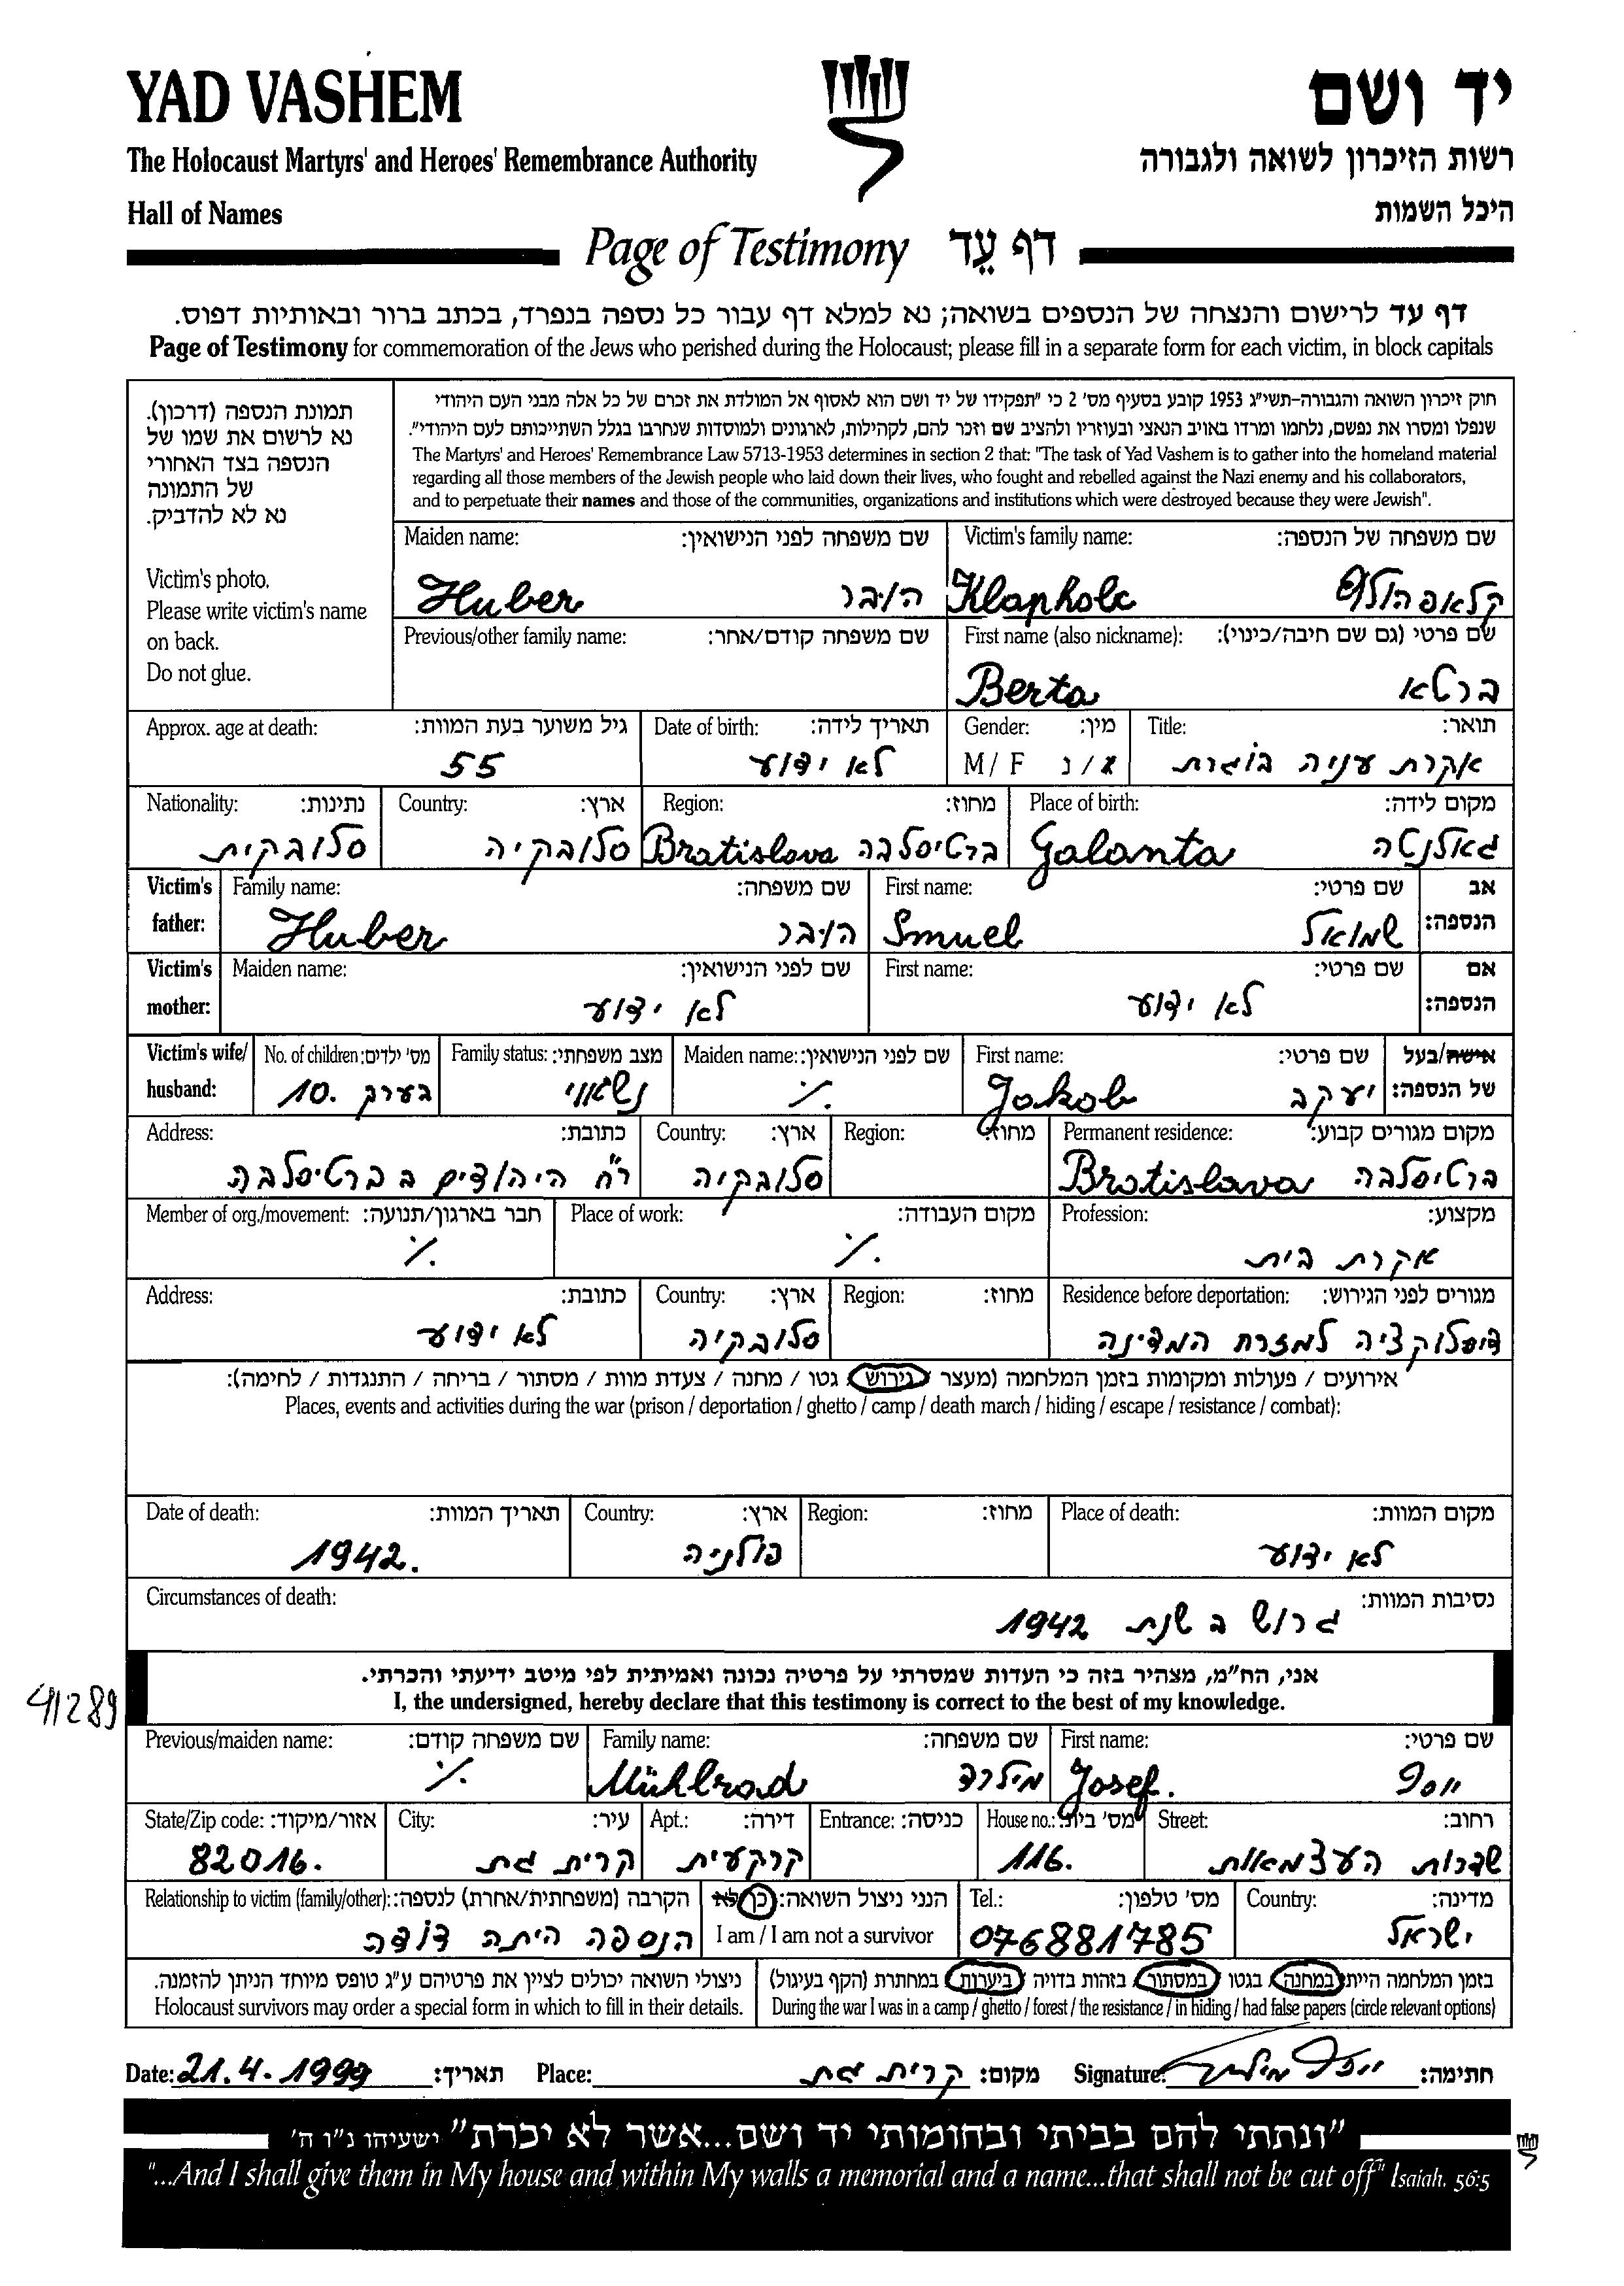 YAD VASHEM
יד ושם
The Holocaust Martyrs' and Heroes' Remembrance Authority
רשות הזיכרון לשואה ולגבורה
Hall of Names
היכל השמות
Page of Testimony דף עֵד
דף עד לרישום והנצחה של הנספים בשואה; נא למלא דף עבור כל נספה בנפרד, בכתב ברור ובאותיות דפוס.
Page of Testimony for commemoration of the Jews who perished during the Holocaust; please fill in a separate form for each victim, in block capitals
תמונת הנספה (דרכון).
נא לרשום את שמו של
הנספה בצד האחורי
של התמונה
נא לא להדביק.
Victim's photo.
Please write victim's name
on back.
Do not glue.
חוק זיכרון השואה והגבורה-תשי"ג 1953 קובע בסעיף מס' 2 כי "תפקידו של יד ושם הוא לאסוף אל המולדת את זכרם של כל אלה מבני העם היהודי
שנפלו ומסרו את נפשם, נלחמו ומרדו באויב הנאצי ובעוזריו ולהציב שם וזכר להם, לקהילות, לארגונים ולמוסדות שנחרבו בגלל השתייכותם לעם היהודי".
The Martyrs' and Heroes' Remembrance Law 5713-1953 determines in section 2 that: "The task of Yad Vashem is to gather into the homeland material
regarding all those members of the Jewish people who laid down their lives, who fought and rebelled against the Nazi enemy and his collaborators,
and to perpetuate their names and those of the communities, organizations and institutions which were destroyed because they were Jewish".
Maiden name: שם משפחה לפני הנישואין: Victim's family name: שם משפחה של הנספה:
Huber הובר Klapholc קלאפהולץ
Previous/other family name: שם משפחה קודם/אחר: First name (also nickname): שם פרטי (גם שם חיבה/כינוי):
Berta ברטא
Approx. age at death: גיל משוער בעת המוות: Date of birth: תאריך לידה: Gender: מין: Title: תואר:
55 לא ידוע M / F ז / נ עקרת
Nationality: נתינות: Country: ארץ: Region: מחוז: Place of birth: מקום לידה:
סלובקית סלובקיה Bratislava ברטיסלבה Galanta גאלנטה
Victim's father: Family name: שם משפחה: First name: שם פרטי: אב הנספה:
Huber הובר Smuel שמואל
Victim's mother: Maiden name: שם לפני הנישואין: First name: שם פרטי: אם הנספה:
לא ידוע לא ידוע
Victim's wife/ husband: No. of children: מס' ילדים: Family status: מצב משפחתי: Maiden name: שם לפני הנישואין: First name: שם פרטי: אישה/בעל של הנספה:
10. בערך נשואי ٪ Jakob יעקב
Address: כתובת: Country: ארץ: Region: מחוז: Permanent residence: מקום מגורים קבוע:
רח היהודים בברטיסלבה סלובקיה Bratislava ברטיסלבה
Member of org./movement: חבר בארגון/תנועה: Place of work: מקום העבודה: Profession: מקצוע:
٪ ٪ עקרת בית
Address: כתובת: Country: ארץ: Region: מחוז: Residence before deportation: מגורים לפני הגירוש:
לא ידוע סלובקיה דיסלוקציה למזרח המדינה
אירועים / פעולות ומקומות בזמן המלחמה (מעצר / גירוש / גטו / מחנה / צעדת מוות / מסתור / בריחה / התנגדות / לחימה):
Places, events and activities during the war (prison / deportation / ghetto / camp / death march / hiding / escape / resistance / combat):
Date of death: תאריך המוות: Country: ארץ: Region: מחוז: Place of death: מקום המוות:
1942. פולניה לא ידוע
Circumstances of death: נסיבות המוות:
גרוש בשנת 1942
אני, הח"מ, מצהיר בזה כי העדות שמסרתי על פרטיה נכונה ואמיתית לפי מיטב ידיעתי והכרתי.
I, the undersigned, hereby declare that this testimony is correct to the best of my knowledge.
41289
Previous/maiden name: שם משפחה קודם: Family name: שם משפחה: First name: שם פרטי:
٪ Mühlrad מילרד Josef. יוסף
State/Zip code: אזור/מיקוד: City: עיר: Apt.: דירה: Entrance: כניסה: House no.: מס' בית: Street: רחוב:
82016. קרית גת קרקעית 116. שדרות העצמאות
Relationship to victim (family/other): הקרבה (משפחתית/אחרת) לנספה: הנני ניצול השואה: כן לא Tel.: מס' טלפון: Country: מדינה:
הנספה היתה דודה I am / I am not a survivor 076881785 ישראל
ניצולי השואה יכולים לציין את פרטיהם ע"ג טופס מיוחד הניתן להזמנה. בזמן המלחמה הייתי במחנה / בגטו / במסתור / בזהות בדויה / ביערות / במחתרת (הקף בעיגול)
Holocaust survivors may order a special form in which to fill in their details. During the war I was in a camp / ghetto / forest / the resistance / in hiding / had false papers (circle relevant options)
Date: 21.4.1999 תאריך: Place: קרית גת מקום: Signature: יוסף מילרד חתימה:
"ונתתי להם בביתי ובחומותי יד ושם...אשר לא יכרת" ישעיהו נ"ו ה'
"...And I shall give them in My house and within My walls a memorial and a name...that shall not be cut off" Isaiah. 56:5